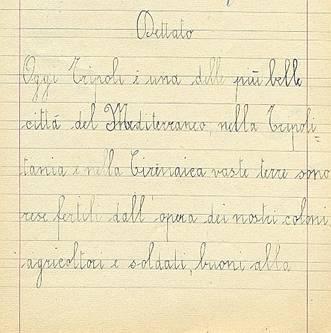 Dettato
Oggi Tripoli è una delle più belle
città del Mediterraneo, nella Tripoli=
tania e nella Cirenaica vaste terre sono
rese fertili dall'opera dei nostri coloni
agricoltori e soldati, buoni alla